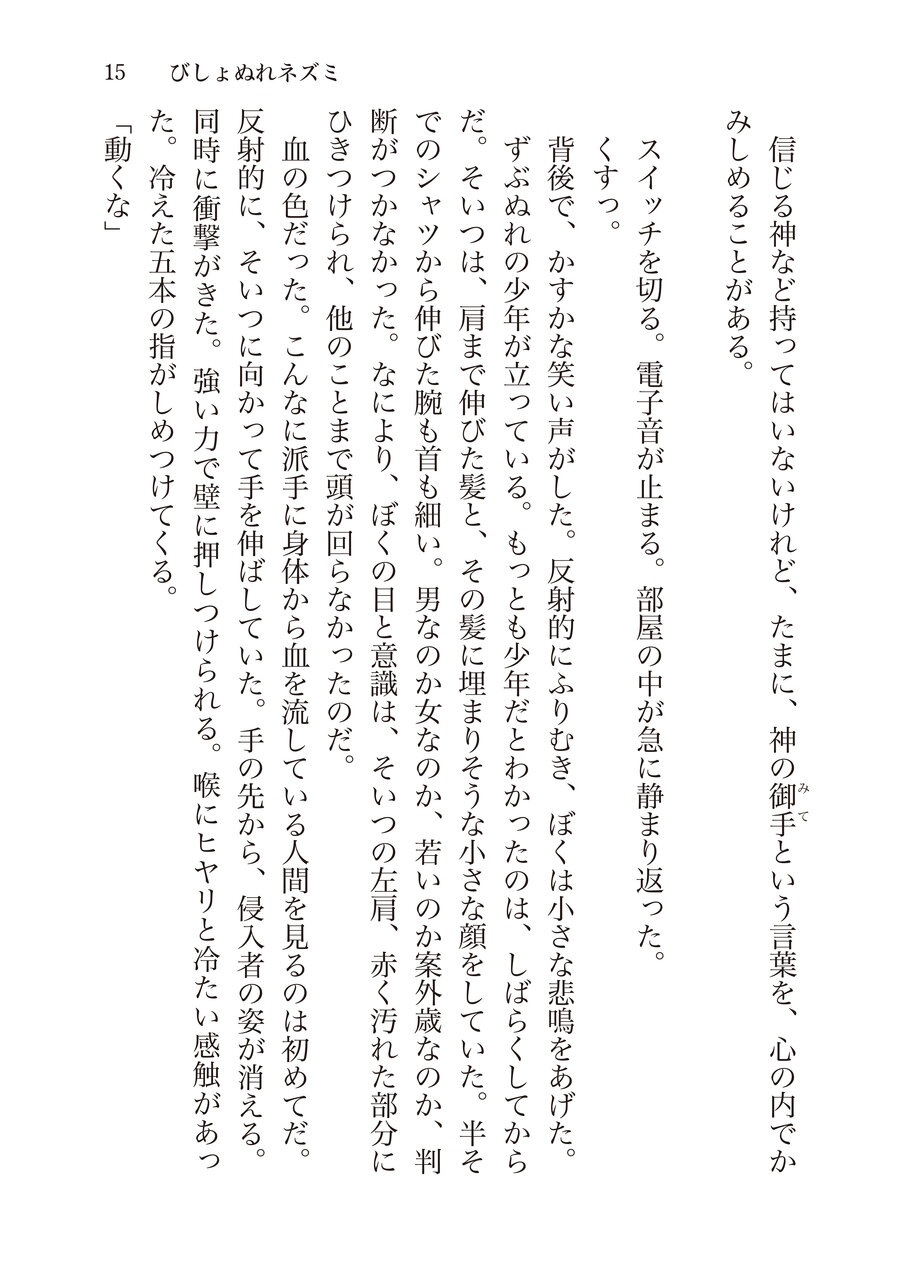 15　びしょぬれネズミ
信じる神など持ってはいないけれど、たまに、神の御手という言葉を、心の内でか
みしめることがある。
スイッチを切る。電子音が止まる。部屋の中が急に静まり返った。
くすっ。
背後で、かすかな笑い声がした。反射的にふりむき、ぼくは小さな悲鳴をあげた。
ずぶぬれの少年が立っている。もっとも少年だとわかったのは、しばらくしてから
だ。そいつは、肩まで伸びた髪と、その髪に埋まりそうな小さな顔をしていた。半そ
でのシャツから伸びた腕も首も細い。男なのか女なのか、若いのか案外歳なのか、判
断がつかなかった。なにより、ぼくの目と意識は、そいつの左肩、赤く汚れた部分に
ひきつけられ、他のことまで頭が回らなかったのだ。
血の色だった。こんなに派手に身体から血を流している人間を見るのは初めてだ。
反射的に、そいつに向かって手を伸ばしていた。手の先から、侵入者の姿が消える。
同時に衝撃がきた。強い力で壁に押しつけられる。喉にヒヤリと冷たい感触があっ
た。冷えた五本の指がしめつけてくる。
「動くな」
みて